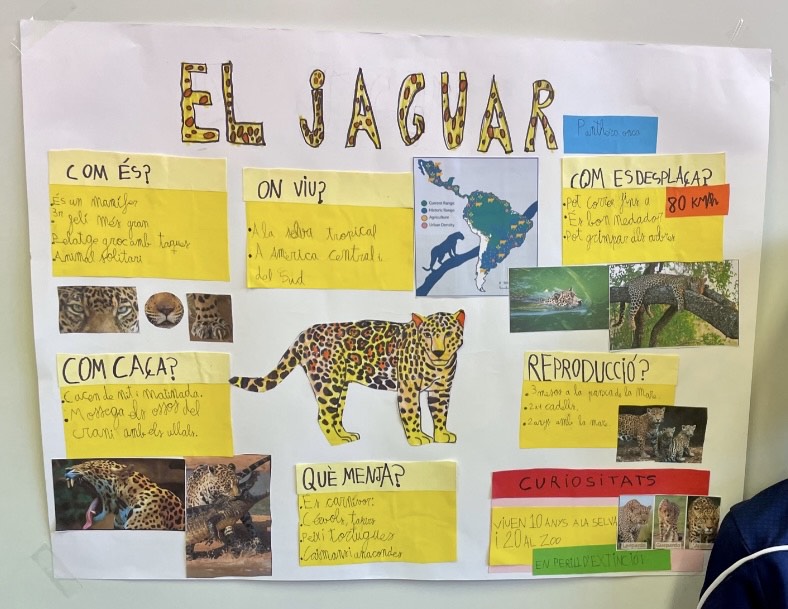 EL JAGUAR
Panthera onca
COM ÉS?
És un mamífer
3r felí més gran
Pelatge groc amb taques
Animal solitari
ON VIU?
• A la selva tropical
• A America central i
del Sud
Current Range
Historic Range
Agriculture
Urban Density
COM ES DESPLAÇA?
• Pot correr fins a
80 KM/h
• És bon nedador
• Pot grimpar als arbres
COM CAÇA?
• Cacen de nit i matinada.
• Mossega els ossos del
crani amb els ullals.
REPRODUCCIÓ?
• 3 mesos a la panxa de la mare.
• cadells.
• 2 anys amb la mare.
QUÈ MENJA?
• Es carnívor:
• Cérvols, tapirs
• peixi tortugues
• Caimans i anacondes
CURIOSITATS
VIUEN 10 ANYS A LA SELVA
i 20 AL ZOO
EN PERILL D'EXTINCIÓ!